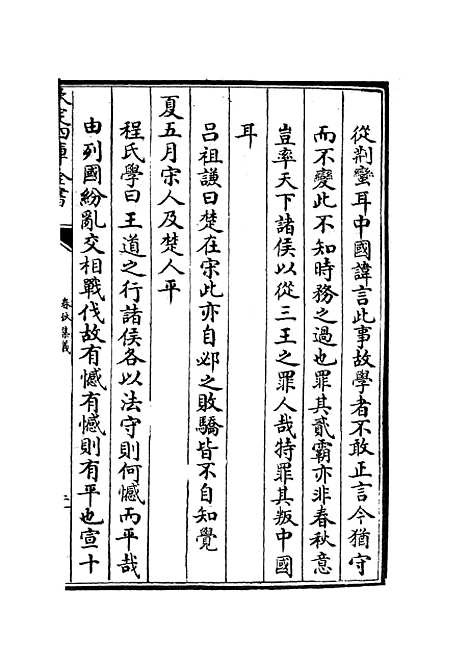 從荆蠻耳中國諱言此事故學者不敢正言今猶守
而不變此不知時務之過也罪其貳霸亦非春秋意
豈率天下諸侯以從三王之罪人哉特罪其叛中國
耳
吕祖謙曰楚在宋此亦自邲之敗驕皆不自知覺
夏五月宋人及楚人平
程氏學曰王道之行諸侯各以法守則何憾而平哉
由列國紛亂交相戰伐故有憾有憾則有平也宣十
欽定四庫全書
春秋集義